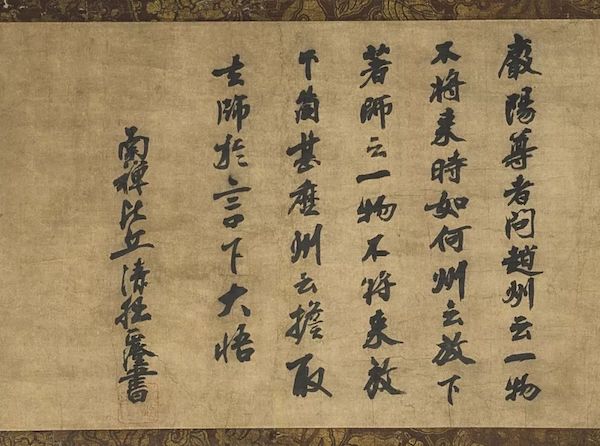 嚴陽尊者問趙州云一物
不將来時如何州云放下
著師云一物不将来放
下箇甚麼州云擔取
去師於言下大悟
南禅比丘清拙正澄書